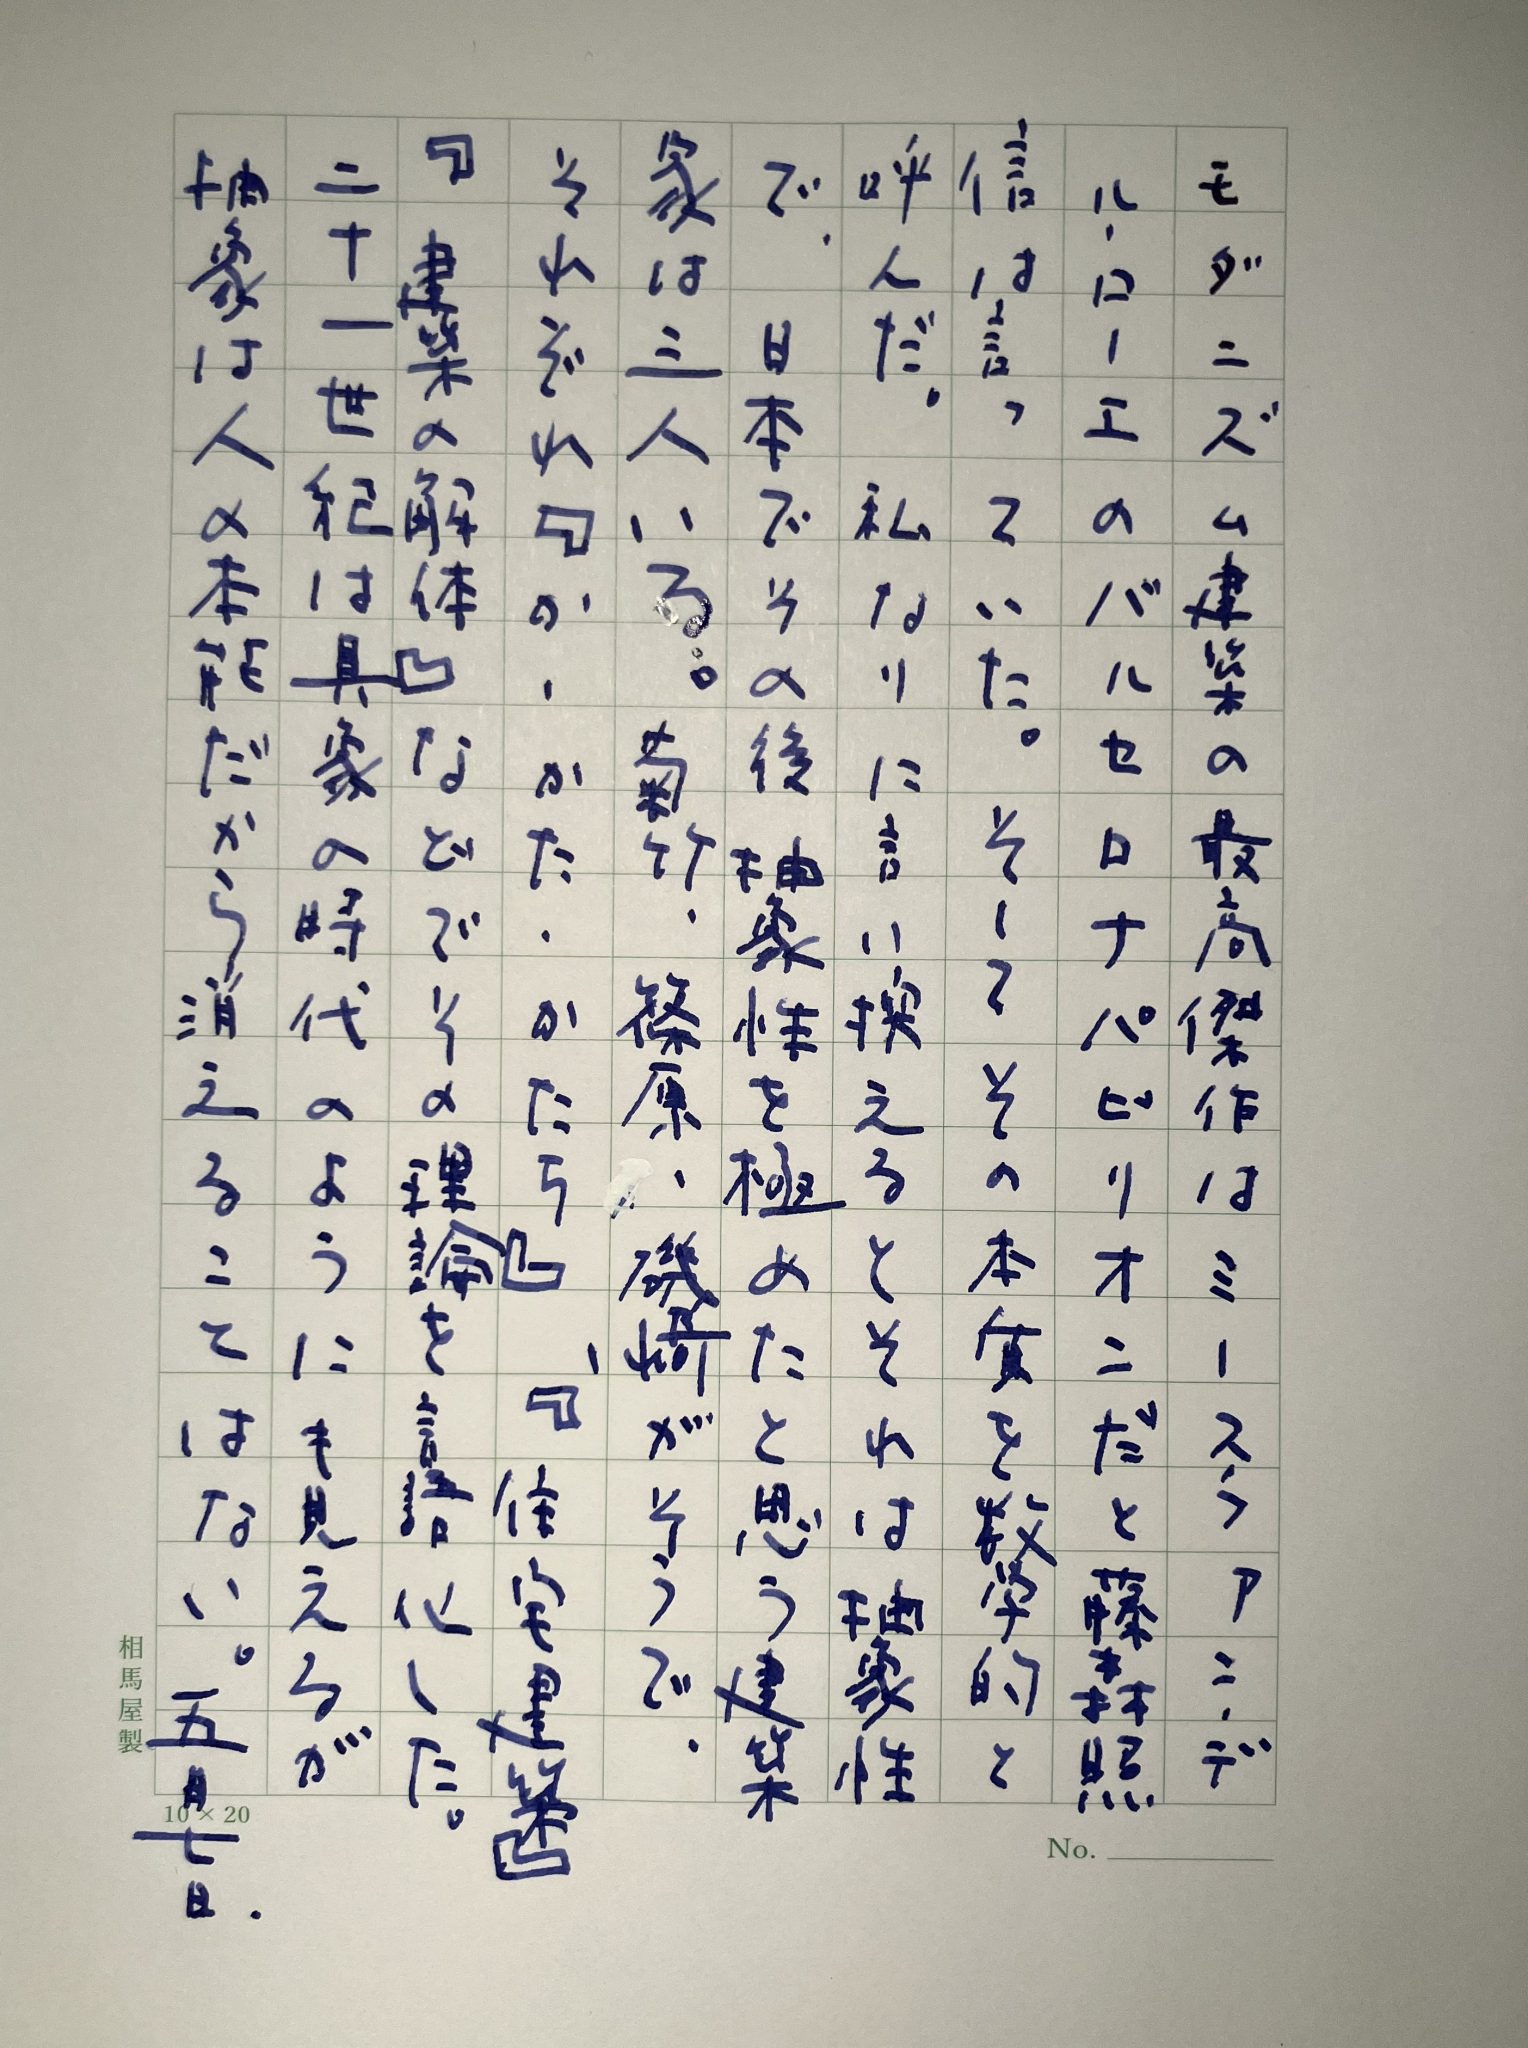 モダニズム建築の最高傑作はミース・ファン・デ
ル・ローエのバルセロナパビリオンだと藤森照
信は言っていた。そしてその本質を数学的と
呼んだ。私なりに言い換えるとそれは抽象性
で、日本でその後抽象性を極めたと思う建築
家は三人いる。菊竹、篠原、磯崎がそうで、
それぞれ『か、かた・かたち』、『住宅建築』
『建築の解体』などでその理論を言語化した。
二十一世紀は具象の時代のようにも見えるが
抽象は人の本能だから消えることはない。五月七日.
相馬屋製
10×20
No.